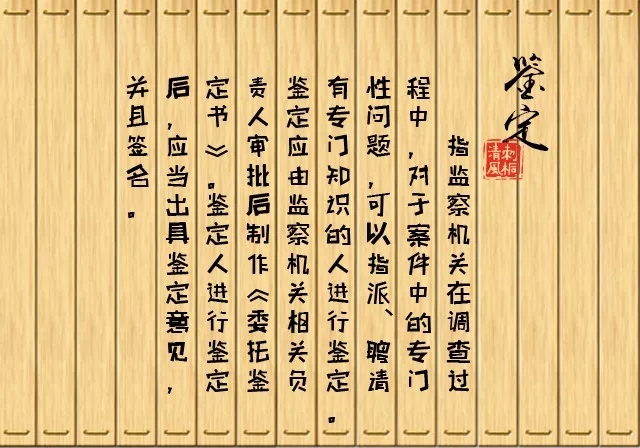 鉴定
刺桐
清風
指监察机关在调查过
程中，对于案件中的专门
性问题，可以指派、聘请
有专门知识的人进行鉴定。
鉴定应由监察机关相关负
责人审批后制作《委托鉴
定书》。鉴定人进行鉴定
后，应当出具鉴定意见，
并且签名。